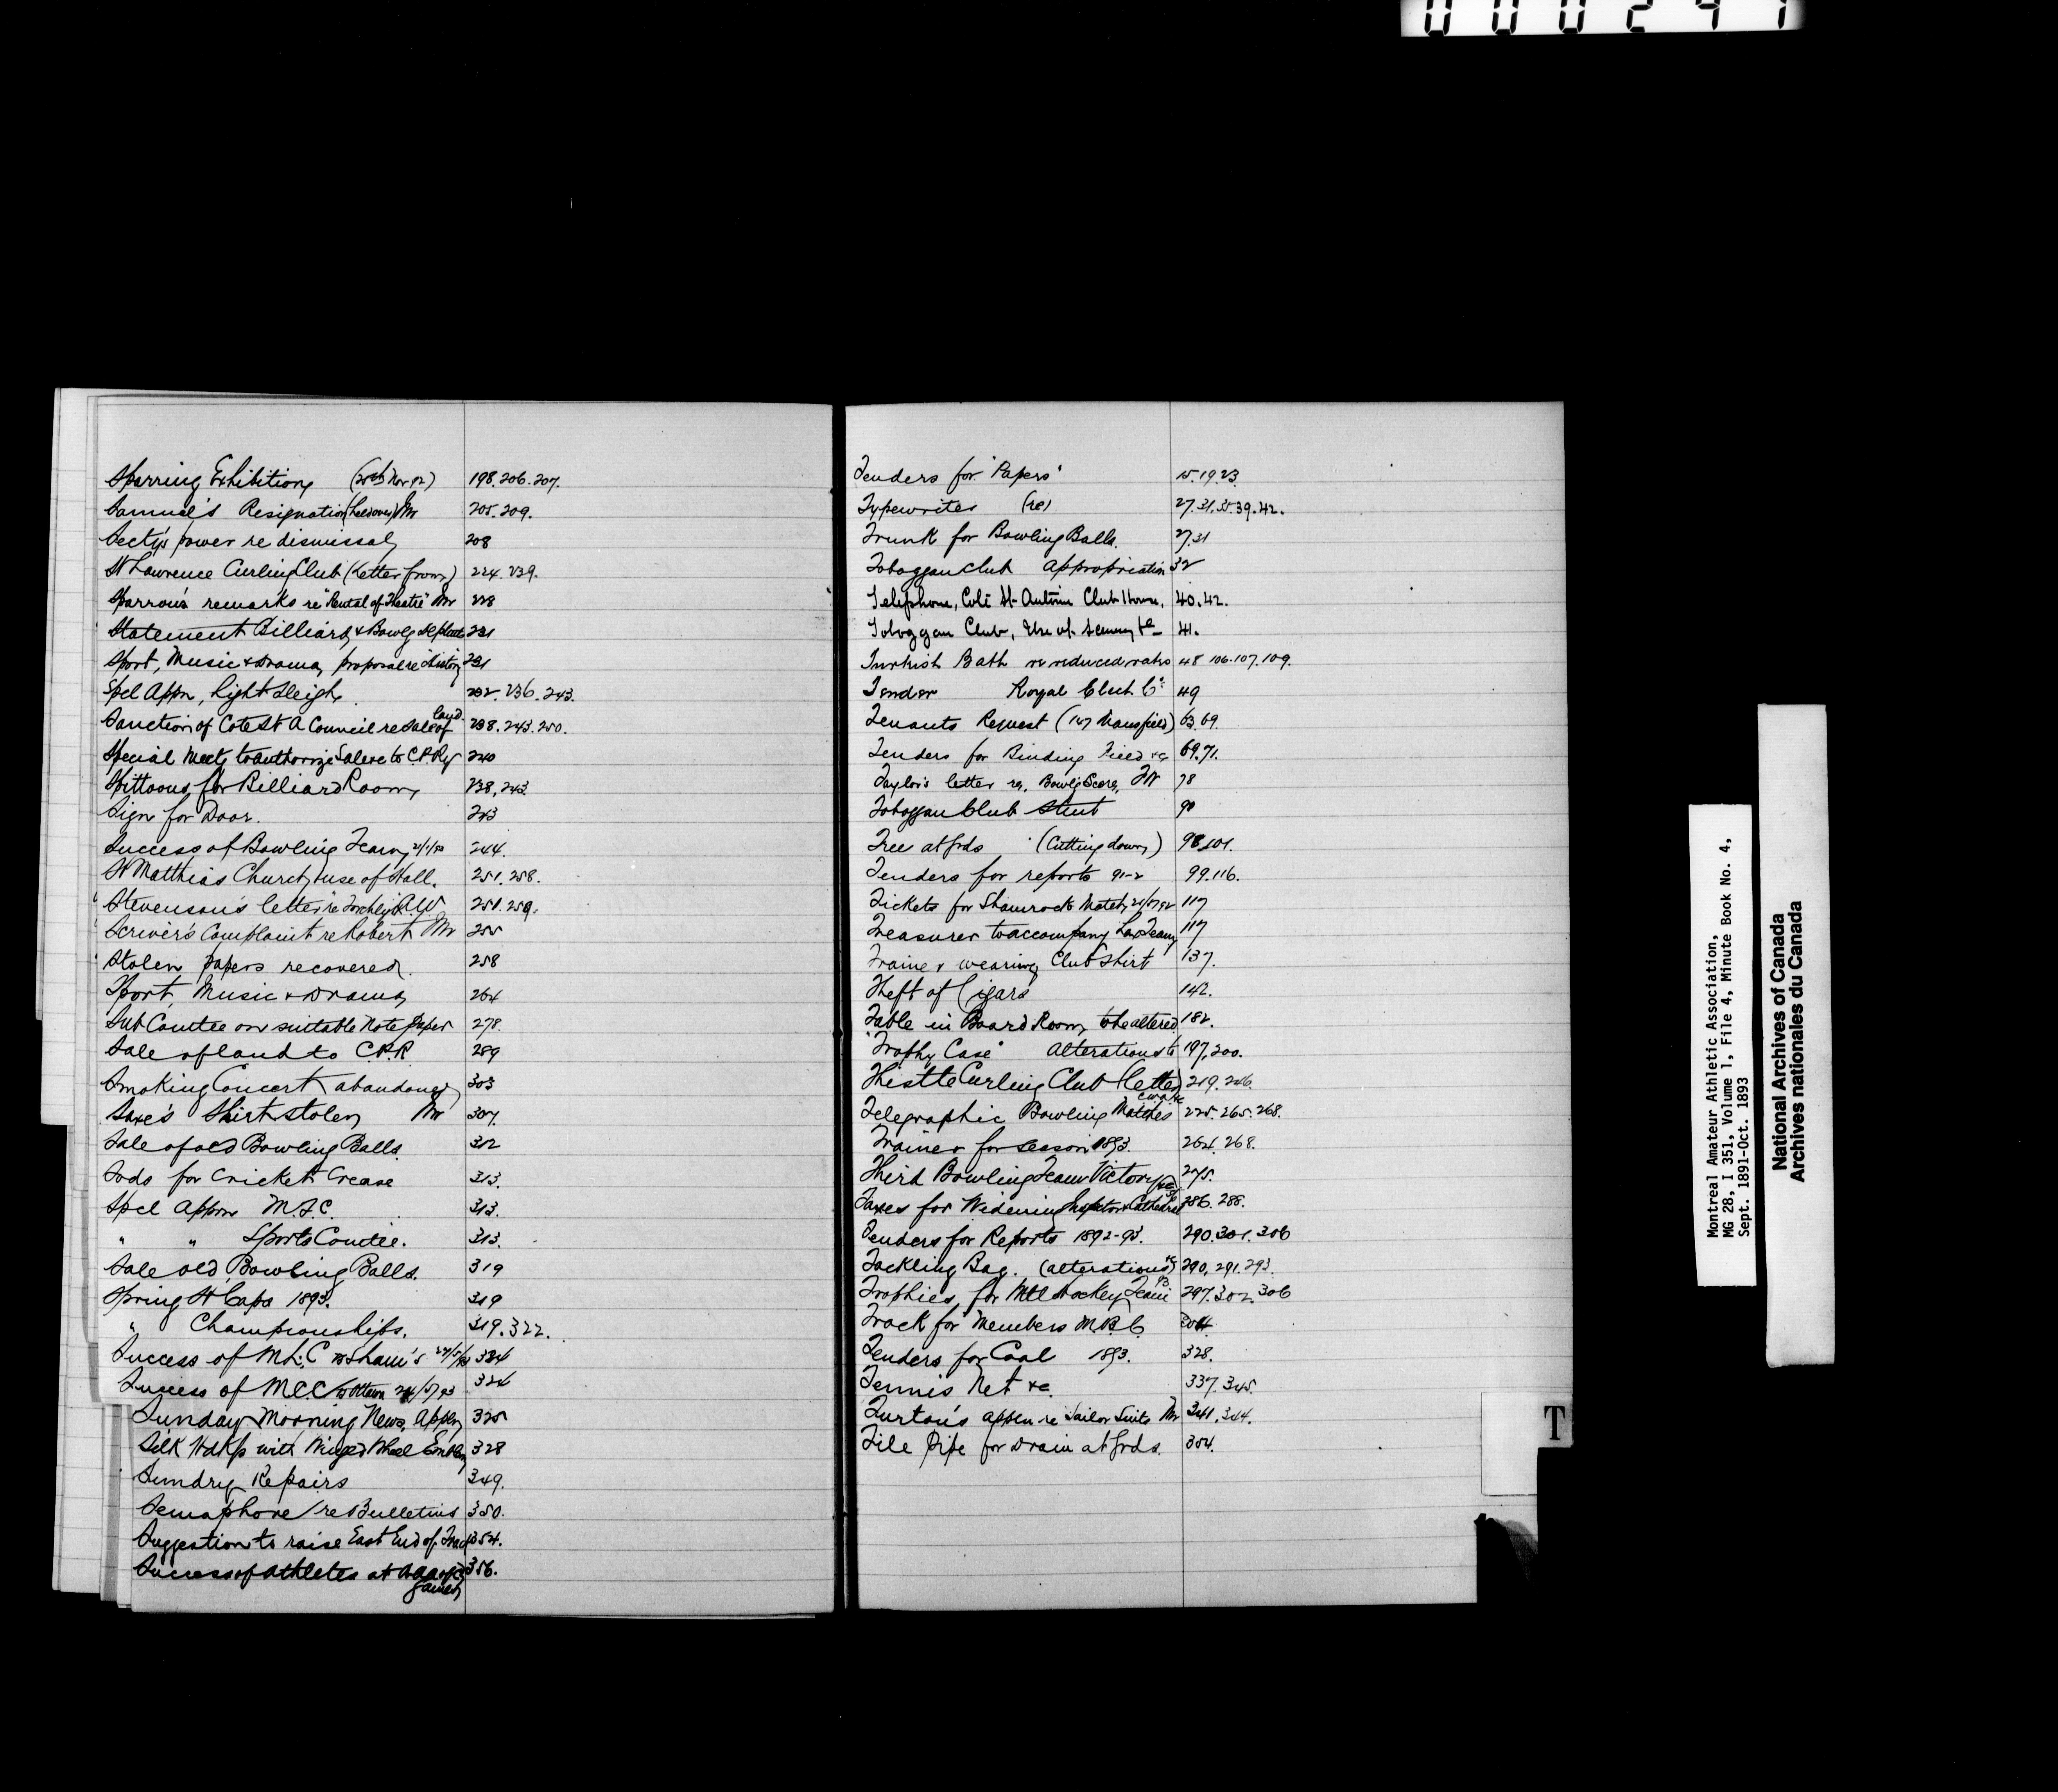 000247
Sparring Exhibition (20th Nov 92) 198.206.207.
Samuel's Resignation (held over) Mr 205.209.
Secty's power re dismissal 208
St Lawrence Curling Club (Letter from) 224.239.
Sparrow's remarks re "Rental of Theatre" Mr 228
Statement Billiard & Bowlg 231
Sport, Music & Drama, proposal re History 231
Spcl Appn, Light Sleigh 232.236.243.
Sanction of Cote St A Council re Sale of land 238.243.250.
Special Meetg to authorize Sale to C.P.Ry 240
Spittoons for Billiard Room 238,243.
Sign for Door. 243
Success of Bowling Team 244.
St Matthias Church, use of Hall. 251.258.
Stevenson's letter re A.W. 251.259.
Scriver's Complaint re Robert Mr 255
Stolen papers recovered. 258
Sport, Music & Drama 264
Sub Comtee on suitable Note Paper 278.
Sale of land to C.P.R 289
Smoking Concert abandoned 303
Saxe's Shirt stolen Mr 307.
Sale of old Bowling Balls. 312
Sods for Cricket Crease 313.
Spcl Appn M.F.C. 313.
" " Sports Comtee. 313.
Sale old Bowling Balls. 319
Spring St Caps 1893. 319
" Championships. 319.322.
Success of M.L.C vs Sham's 24/5/93 324
Success of M.C.C vs Ottawa 24/5/93 324
Sunday Morning News, Appln 325
Silk Hdkfs with Winged Wheel Emblem 328
Sundry Repairs 349.
Semaphore re Bulletins 350.
Suggestion to raise East End of Track 354.
Success of athletes at games 356.
Tenders for "Papers" 15.19.23.
Typewriter (re) 27.31.35.39.42.
Trunk for Bowling Balls. 27.31
Toboggan Club Appropriation 32
Telephone, Coté St Antoine Club House. 40.42.
Toboggan Club, Use of Scenery &c 41.
Turkish Bath re reduced rates 48.106.107.109.
Tender Royal Elect Co. 49
Tenants Request (147 Mansfield) 63.69.
Tenders for Binding Field &c 69.71.
Taylor's letter re, Bowlg Score, TW 78
Toboggan Club Stunt 90
Tree at Grds (Cutting down) 98.101.
Tenders for reports 91-2 99.116.
Tickets for Shamrock Match 117
Treasurer to accompany Lax Team 117
Trainer wearing Club Shirt 137.
Theft of Cigars 142.
Table in Board Room to be altered. 182.
"Trophy Case" Alterations to 197,200.
Thistle Curling Club (letter) 219.226.
Telegraphic Bowling Matches 225.265.268.
Trainer for season 1893. 264.268.
Third Bowling Team Victory 275.
Taxes for Widening & Cathedral 286.288.
Tenders for Reports 1892-93. 290.301.306
Tackling Bag. (alterations) 290,291.293.
Trophies for Mtl Hockey Team 93 297.302.306
Track for Members M.B.C. 304.
Tenders for Coal 1893. 328.
Tennis Net &c. 337.345.
Turton's appln re Sailor Suits Mr 341.344.
Tile Pipe for Drain at Grds. 354.
T
Montreal Amateur Athletic Association,
MG 28, I 351, Volume 1, File 4, Minute Book No. 4,
Sept. 1891-Oct. 1893
National Archives of Canada
Archives nationales du Canada